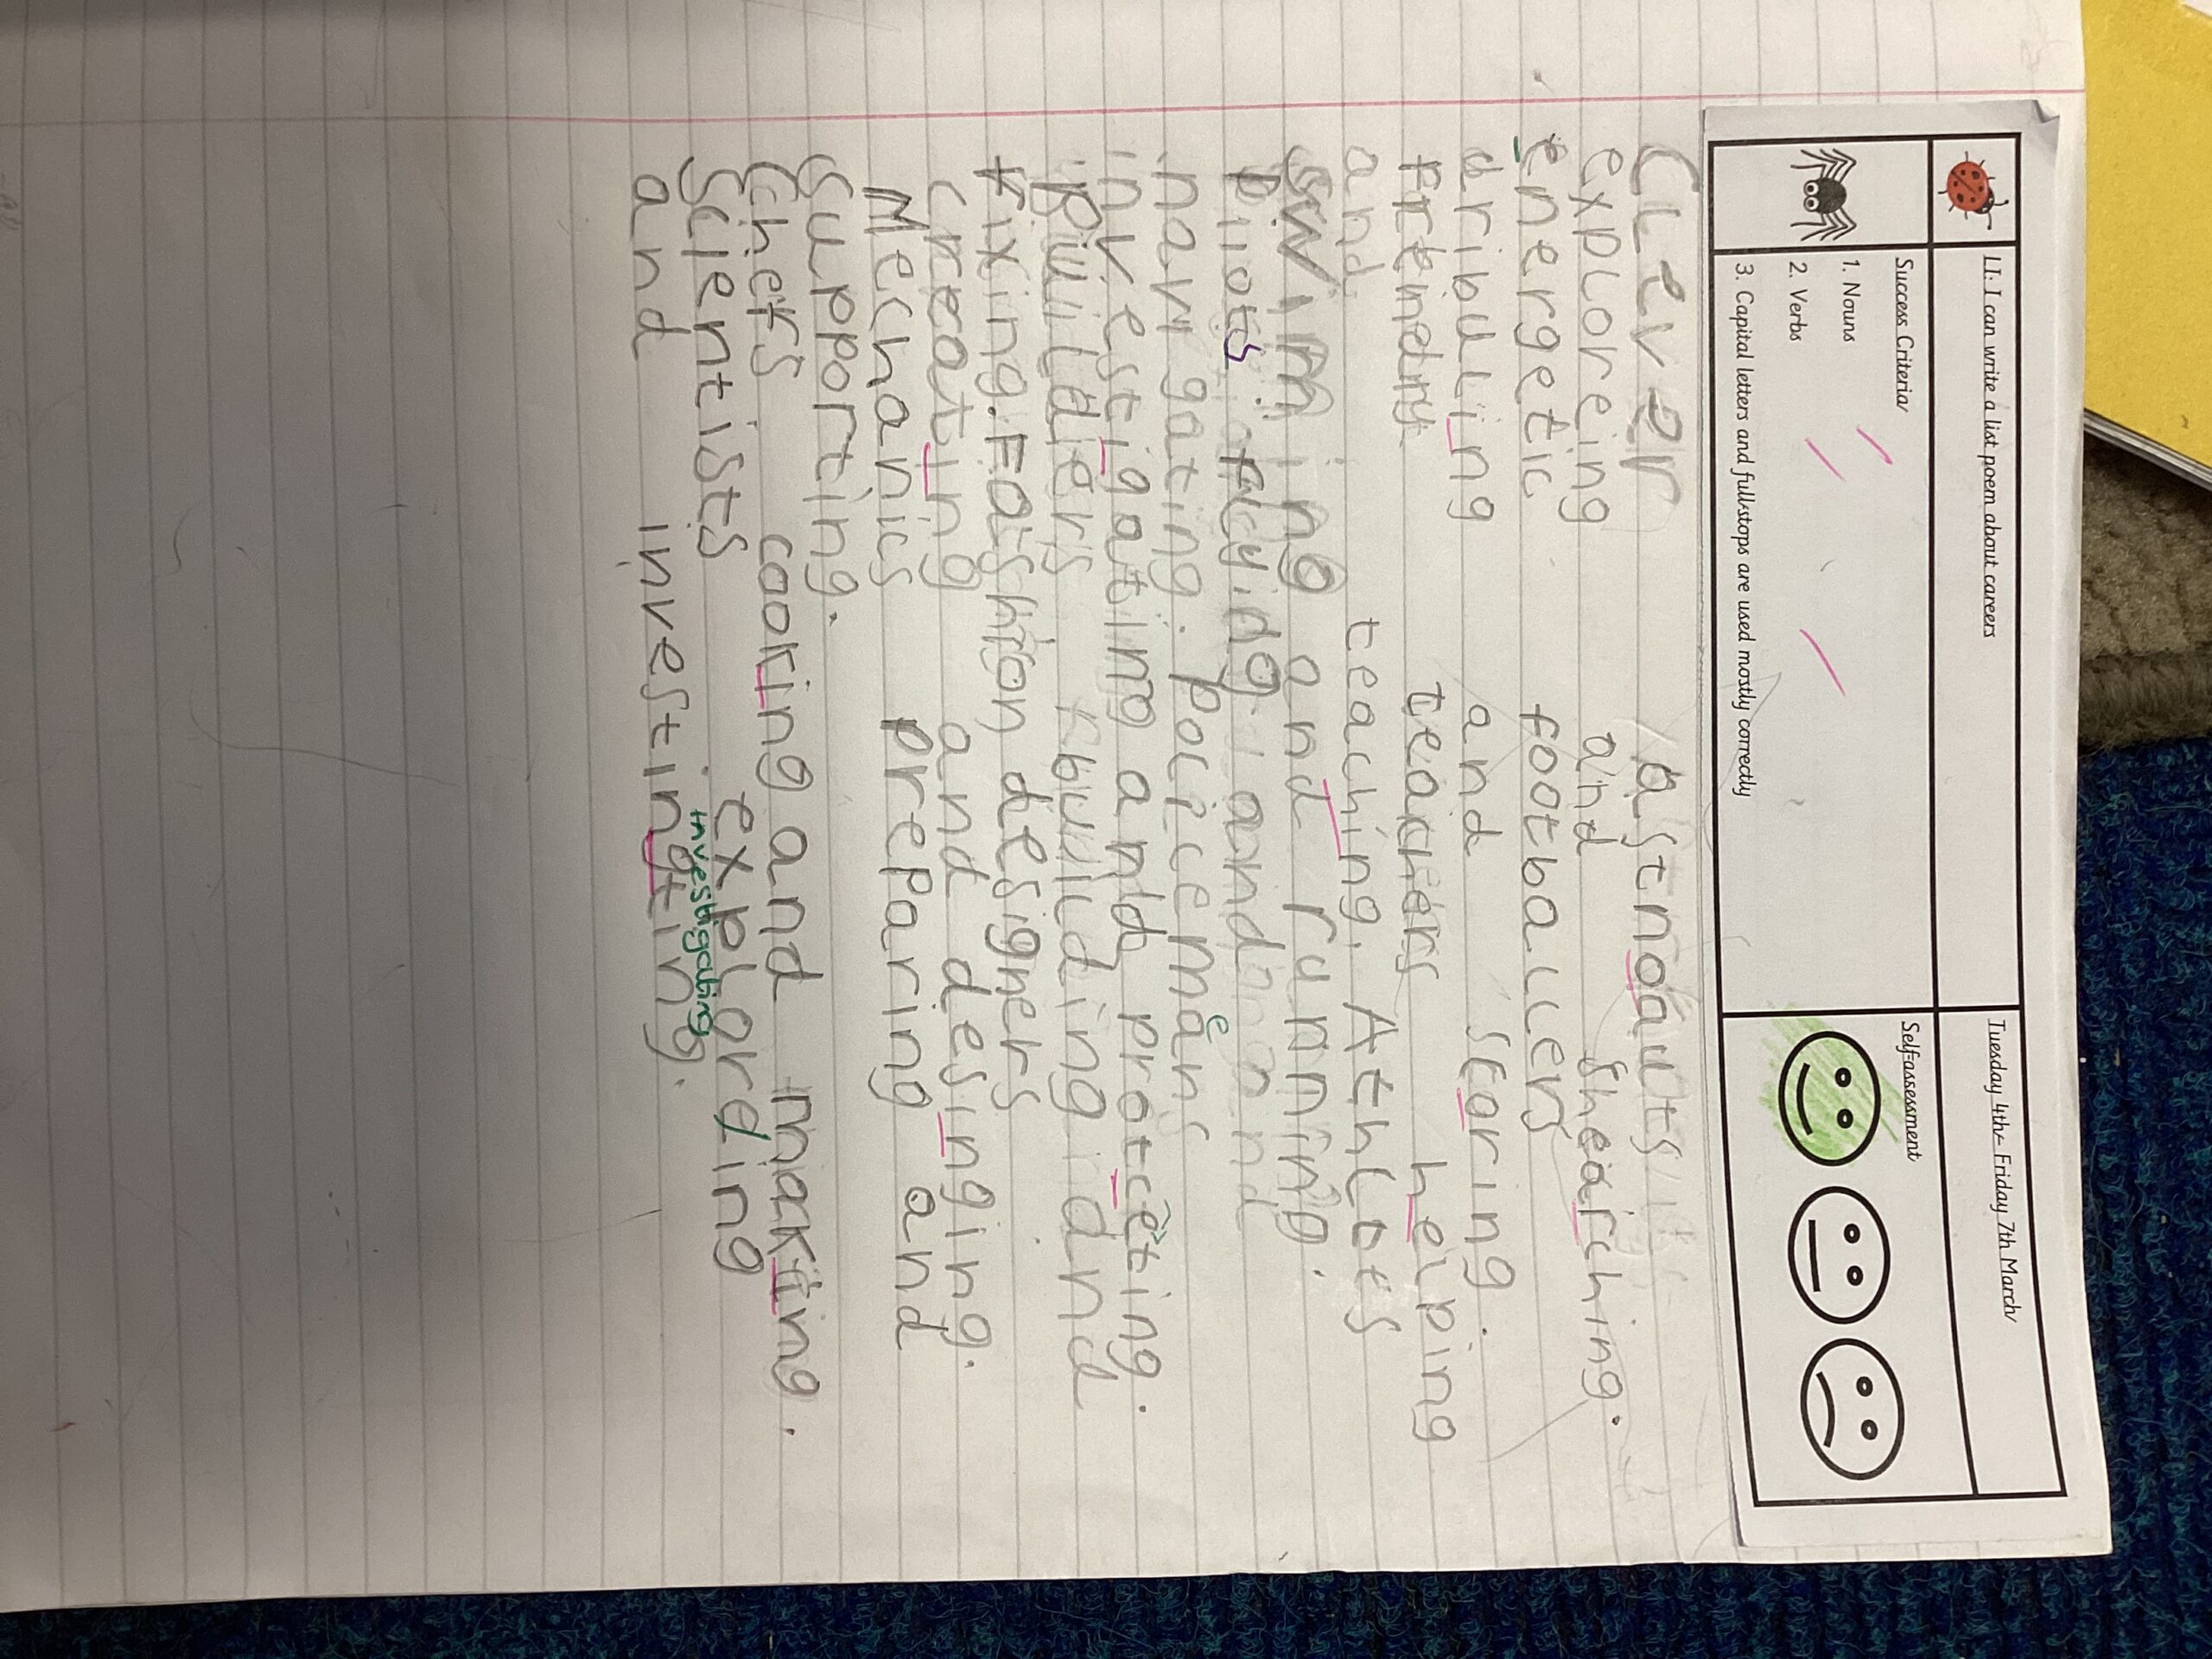 LI: I can write a list poem about careers
Tuesday 4th- Friday 7th March
Success Criteria
Self-assessment
1. Nouns
2. Verbs
3. Capital letters and full stops are used mostly correctly
Clever astnoauts
exploreing and shearching.
energetic footballers
dribulling and scaring.
Friendry teachers helping
and teaching. Athlots
swimming and running.
Pilots flyidg and
navigating. Policemans
e
investigating and protceting.
Builders building and
fixing. Fashion designers
creating and desinging.
Mechanics preparing and
supporting.
Chefs cooking and making.
Scientists exploreing
investigating
and investingting.